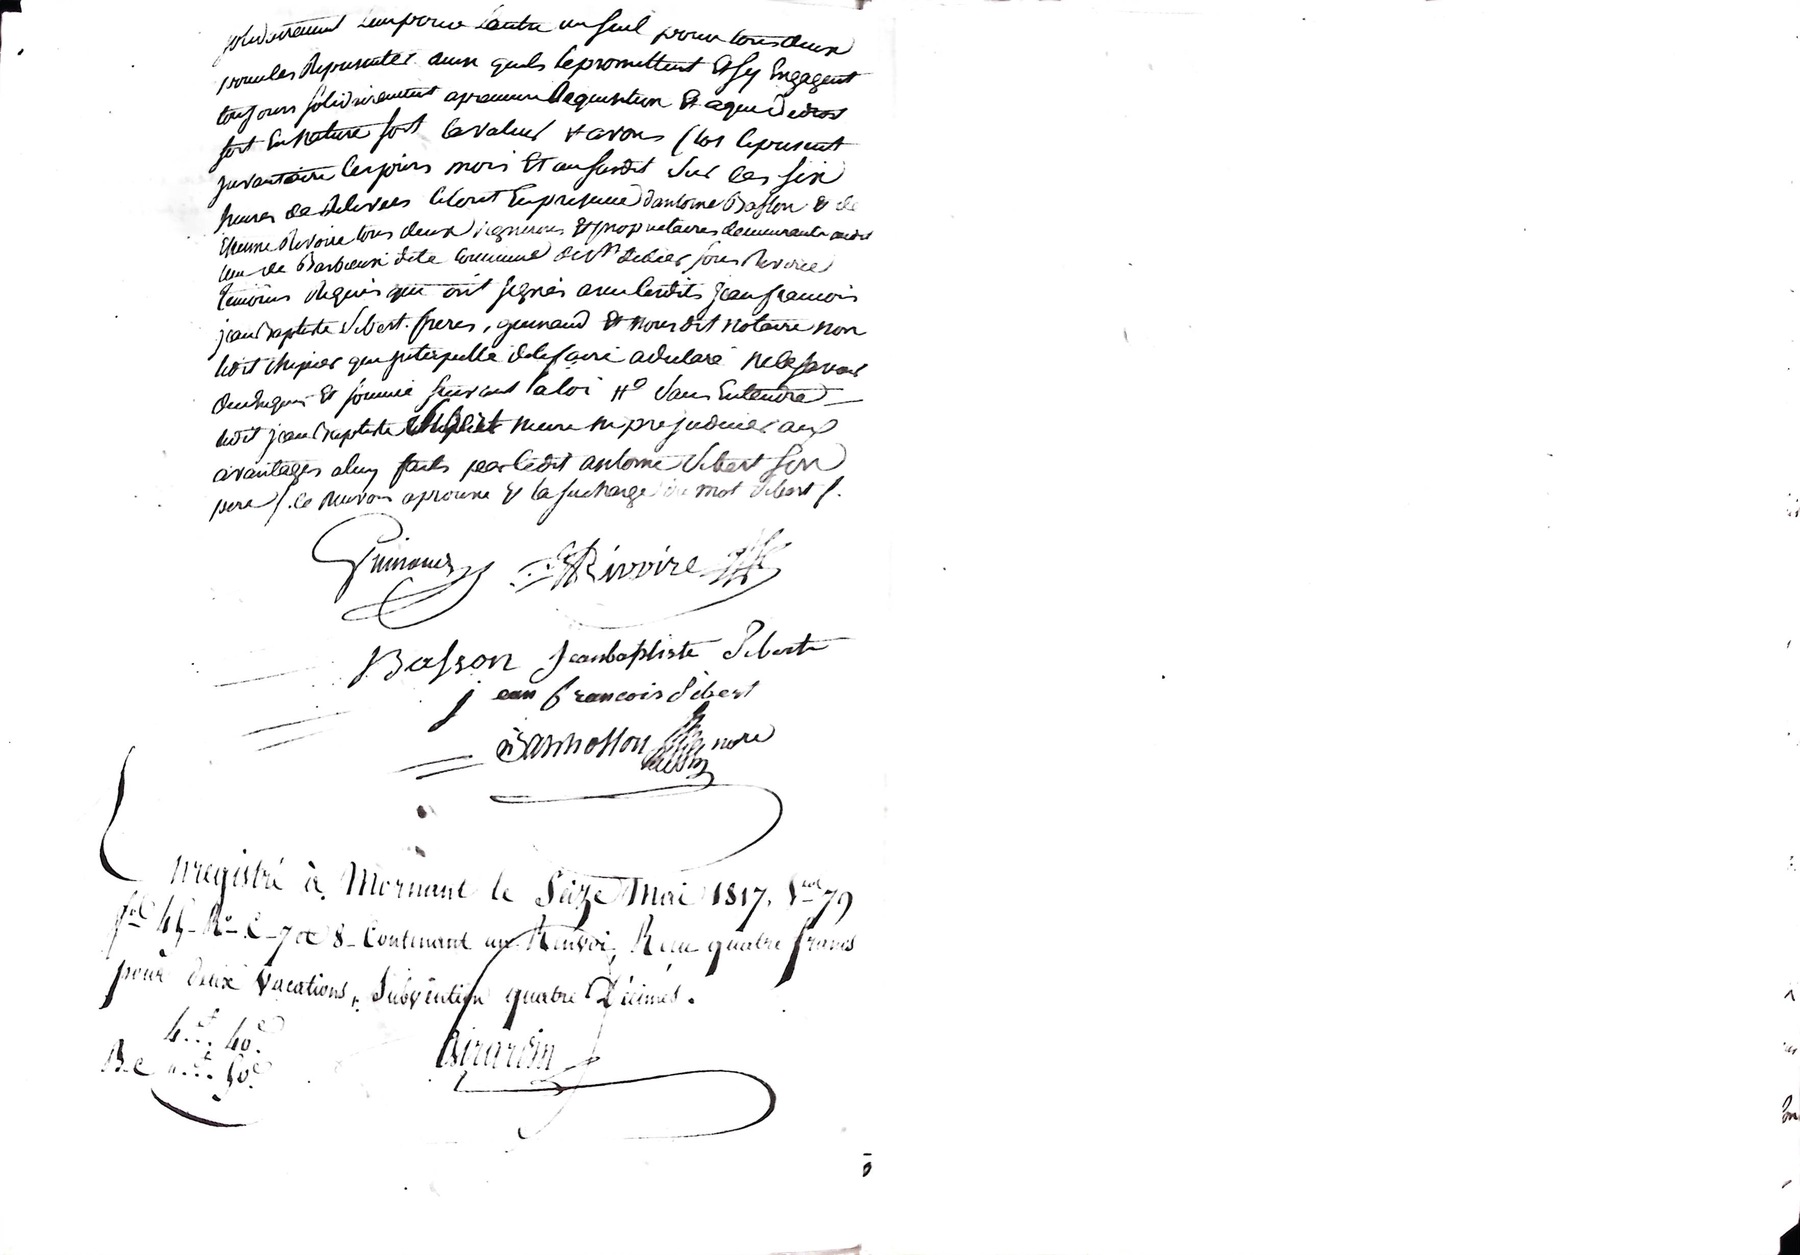 solidairement l'un pour l'autre un seul pour tous deux
pour les Representer ainsi quils le promettent Et sy Engagent
toujours solidairement a premiere Requisition Et a qui de droit
soit En Nature soit la valeur & avons clos le present
Inventaire les jours mois Et an susdit sur les six
heures de Relevées le tout En presence d'antoine Basson & de
Etienne Rivoire tous deux vignerons Et proprietaires demeurants audit
lieu de de la Commune de St didier sous Riverie
Temoins Requis qui ont signés avec lesdits jean francois
jean Baptiste Sibert freres, guinand Et nous dit notaire non
ledit que Interpellé de le faire a declaré ne le savoir
Enquis Et sommé suivant la loi sans Entendre
ledit jean Baptiste Sibert nuire ni prejudicier aux
avantages a luy faits par ledit antoine Sibert son
pere /. le Renvoi aprouvé & la surcharge du mot Sibert /.
Guinand Rivoire
Basson Jean baptiste Sibert
jean francois Sibert
nore
Enregistré à Mornant le Seize Mai 1817. Vol 79
fol 45 Ro C 7 et 8 Contenant un Renvoi, Reçu quatre francs
pour deux Vacations, Subvention quatre Décimes.
4 f. 40 c.
Girardin